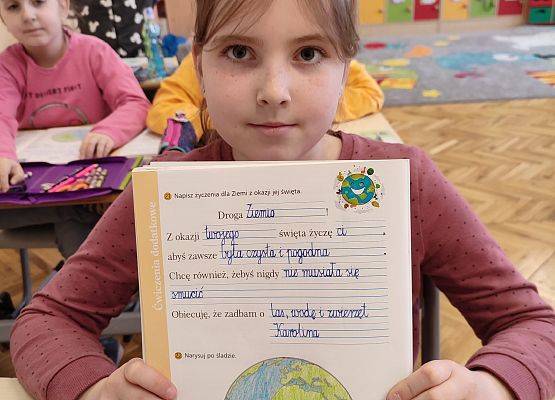 DESSERTS FIRST
Ćwiczenia dodatkowe
21 Napisz życzenia dla Ziemi z okazji jej święta.
Droga Ziemio !
Z okazji twojego święta życzę ci ,
abyś zawsze była czysta i pogodna .
Chcę również, żebyś nigdy nie musiała się
smucić .
Obiecuję, że zadbam o las, wodę i zwierzęt .
Karolina
22 Narysuj po śladzie.